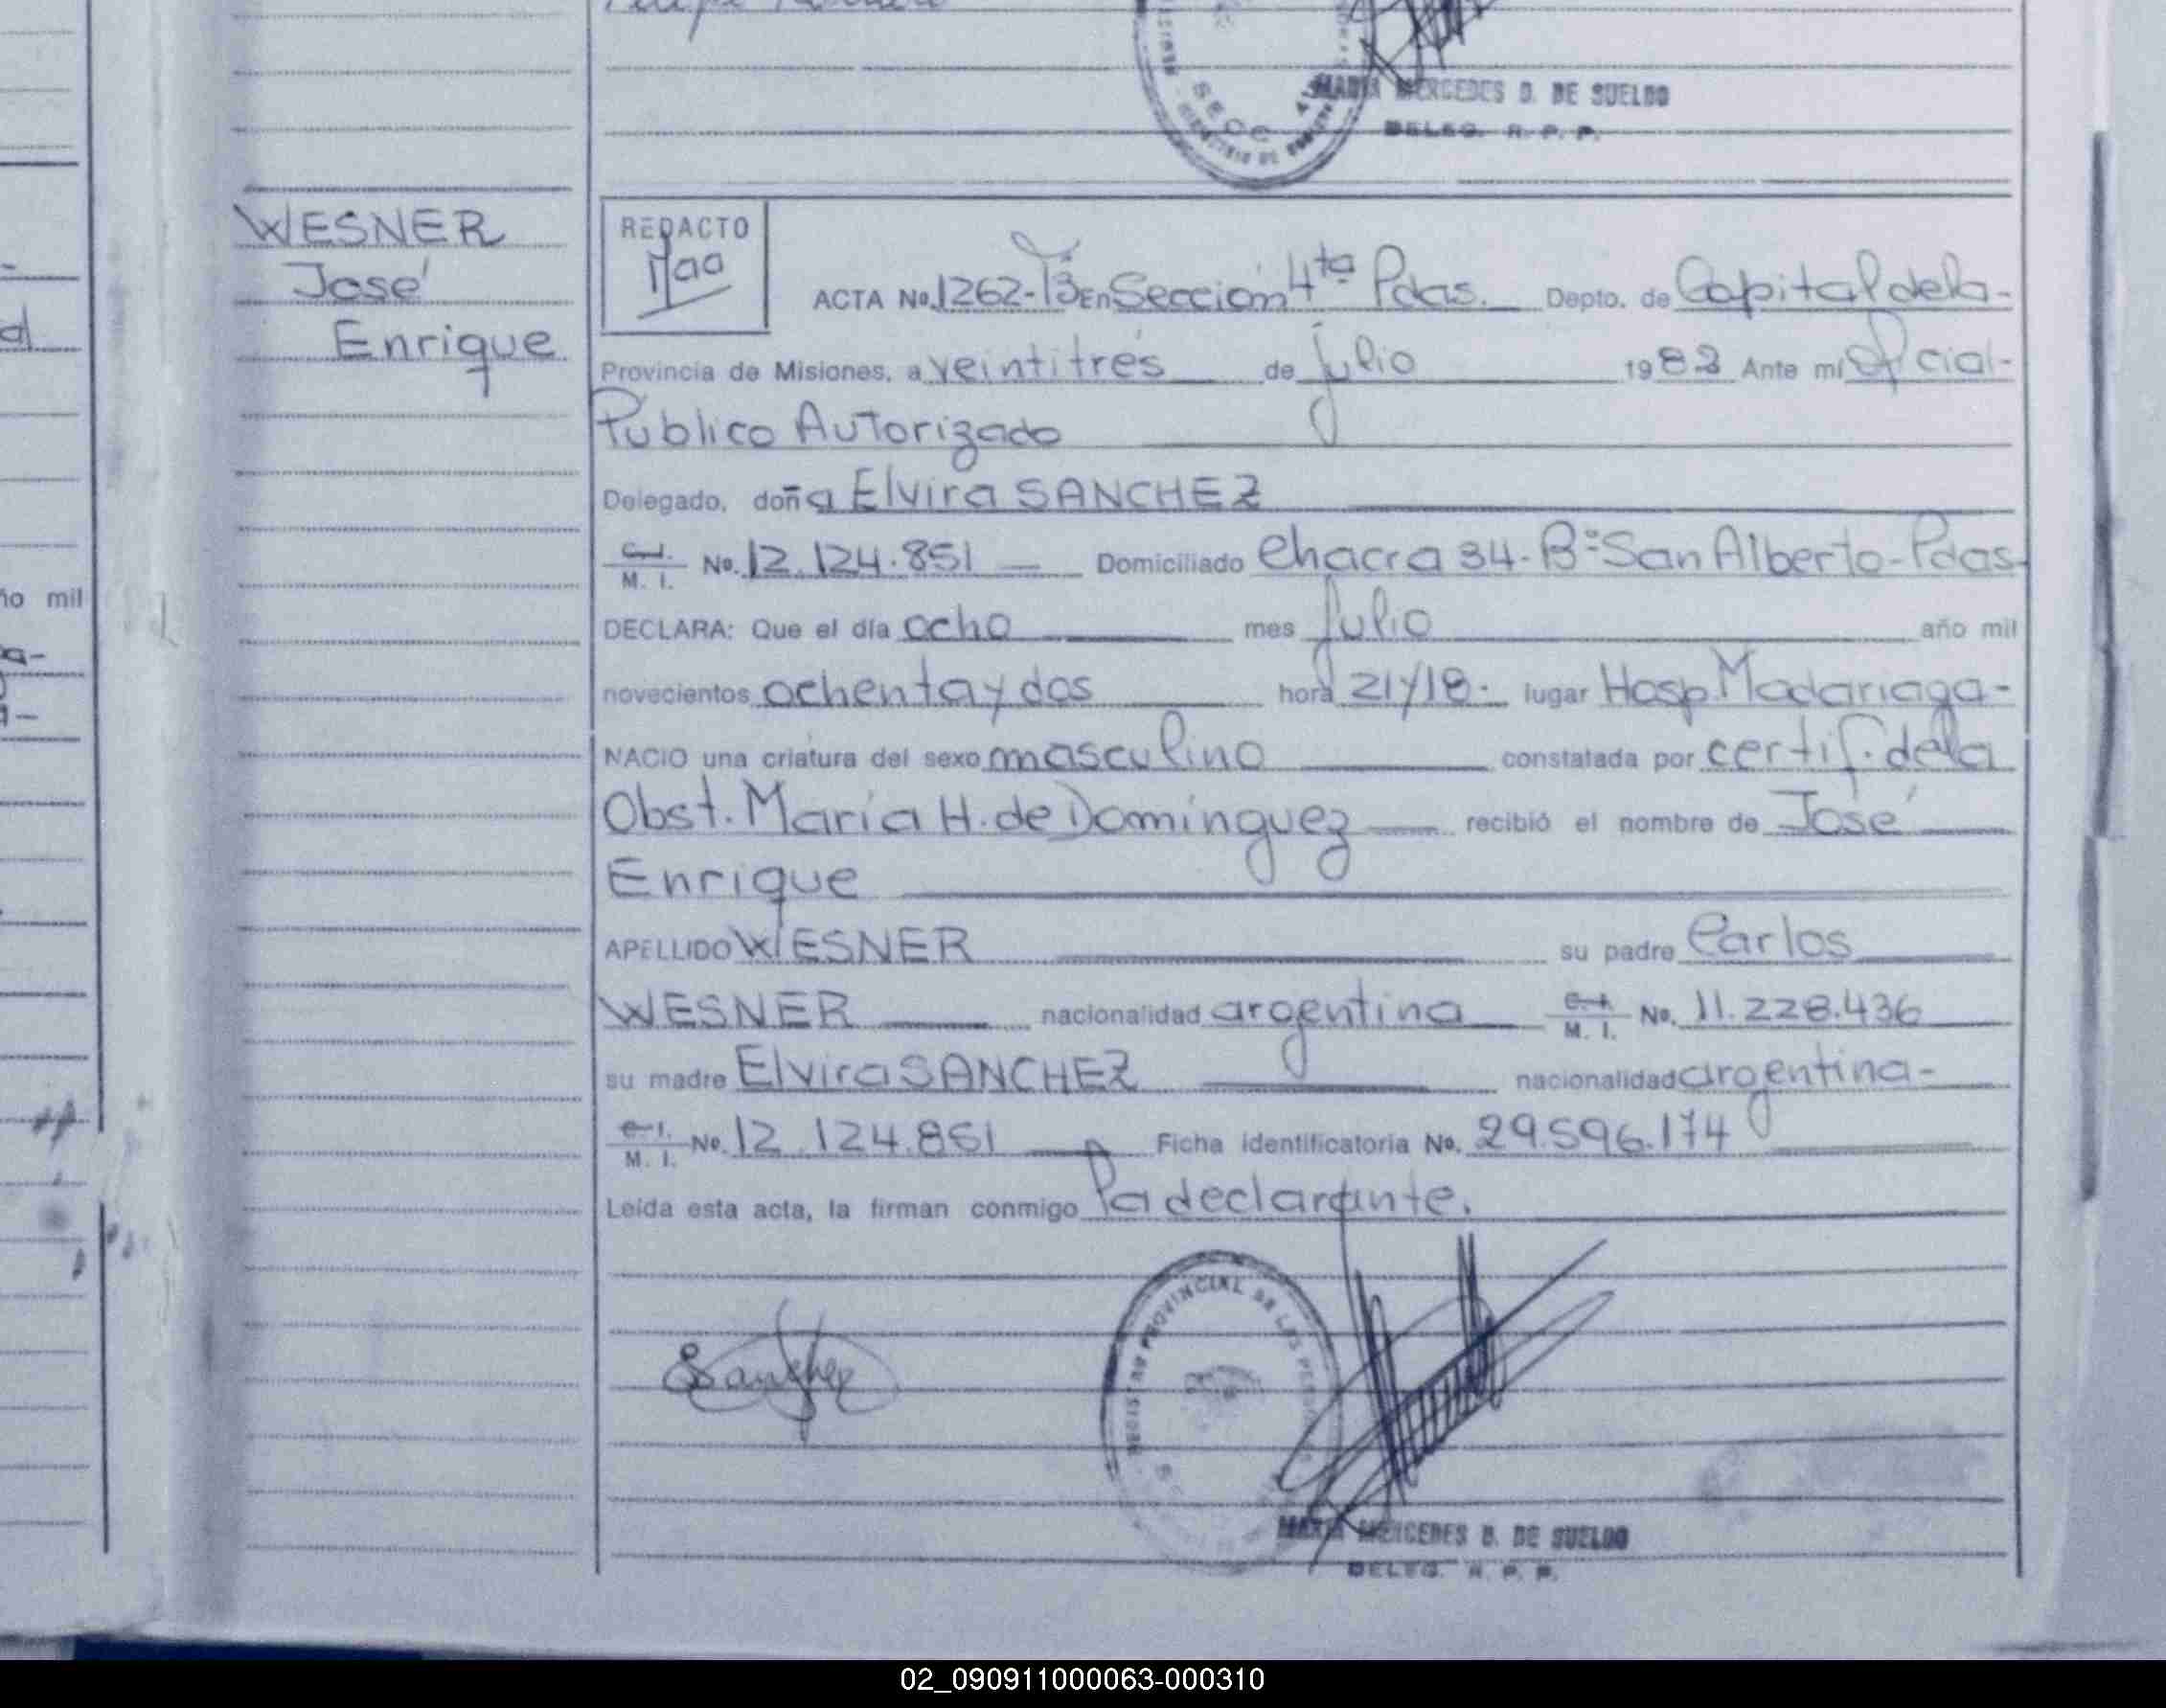 MARIA MERCEDES B. DE SUELDO
DELEG. R. P. P.
WESNER
José
Enrique
REDACTO
ACTA No. 1262-T3 En Sección 4ta Pdas. Depto. de Capital de la-
Provincia de Misiones, a veintitrés de julio 1982 Ante mí Oficial-
Público Autorizado
Delegado, doña Elvira SANCHEZ
C.I. M. I. No. 12.124.851 Domiciliado Chacra 34-Bº San Alberto-Pdas-
DECLARA: Que el día ocho mes julio año mil
novecientos ochenta y dos hora 21/18. lugar Hosp. Madariaga-
NACIO una criatura del sexo masculino constatada por certif. de la
Obst. María H. de Domínguez recibió el nombre de José
Enrique
APELLIDO WESNER su padre Carlos
WESNER nacionalidad argentina C.I. M. I. No. 11.228.436
su madre Elvira SANCHEZ nacionalidad argentina-
C.I. M. I. No. 12.124.851 Ficha identificatoria No. 29.596.174
Leída esta acta, la firman conmigo la declarante.
Sanchez
REGISTRO PROVINCIAL DE LAS PERSONAS
MARIA MERCEDES B. DE SUELDO
DELEG. R. P. P.
ño mil
02_090911000063-000310